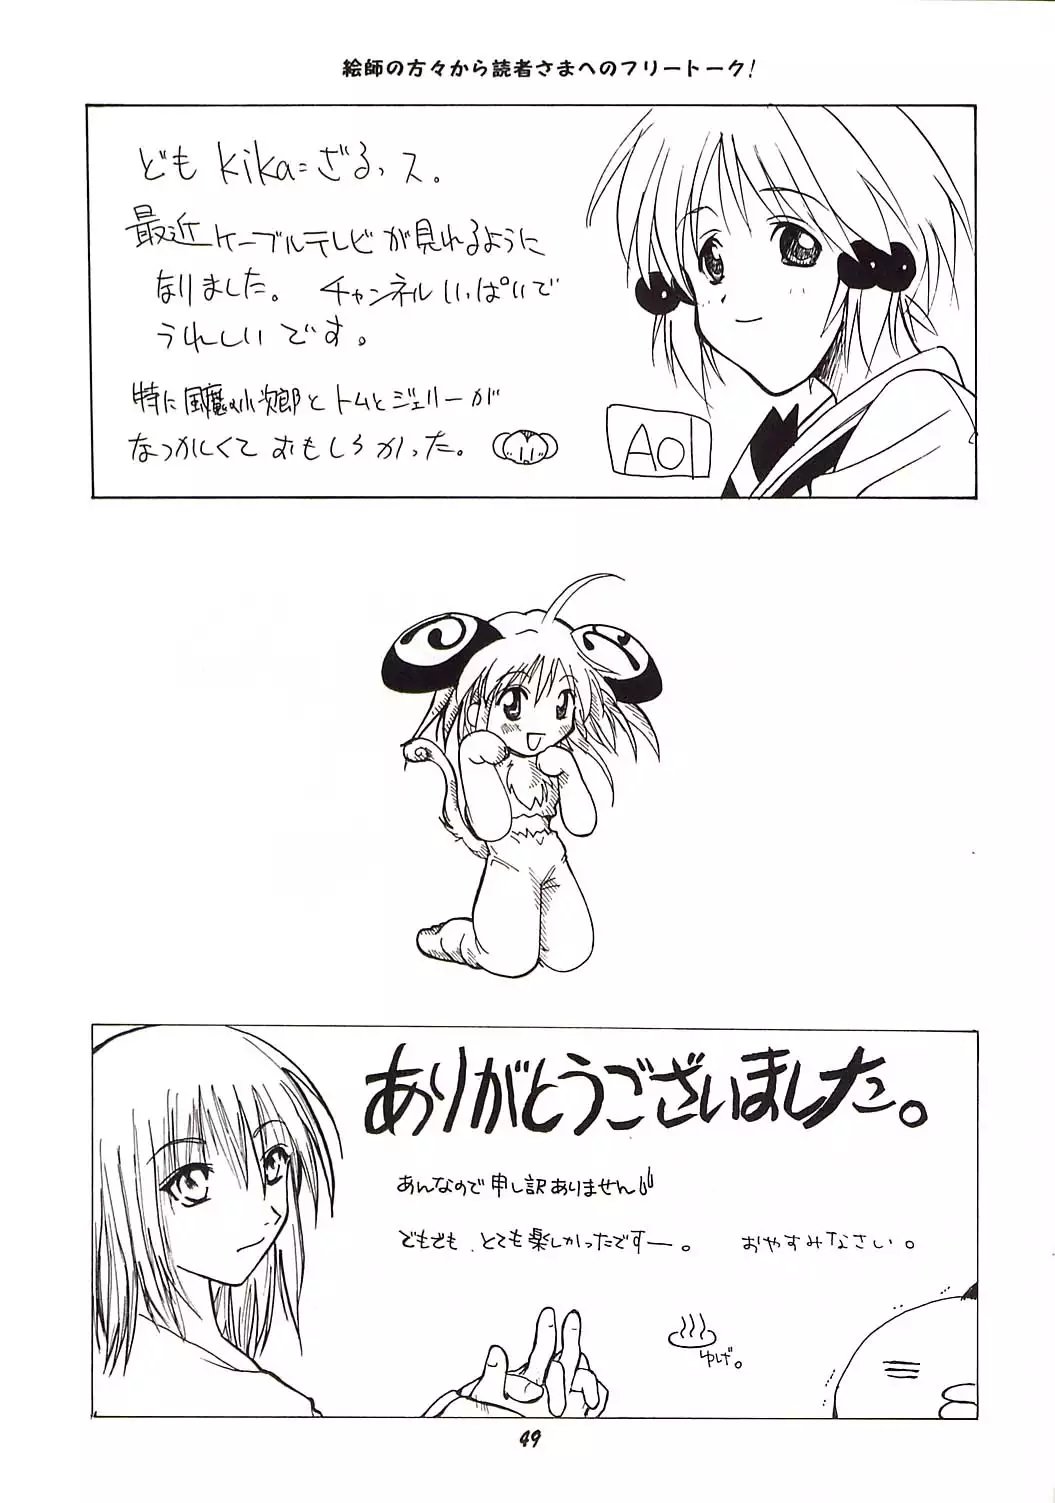 絵師の方々から読者さまへのフリートーク!
ども kika=ざるっス。
最近ケーブルテレビが見れるように
なりました。 チャンネルいっぱいで
うれしいです。
特に風魔の小次郎とトムとジェリーが
なつかしくておもしろかった。
AOI
ありがとうございました。
あんなので申し訳ありません
でもでも、とても楽しかったですー。 おやすみなさい。
ゆげ。
49